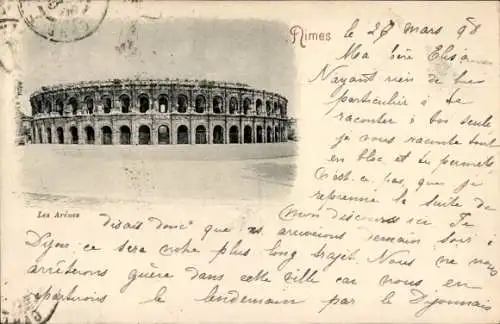 Nimes
le 27 mars 98
Ma chère Elisa
N'ayant rien de bien
particulier à te
raconter à toi seule
je vous raconte tout
en bloc et tu permets
n'est-ce pas, que je
reprenne la suite de
mon discours ici. Je
Les Arènes
disais donc que nous arriverions demain soir à
Dijon ce sera notre plus long trajet. Nous ne nous
arrêterons guère dans cette ville car nous en
repartirons le lendemain par le Dijonnais